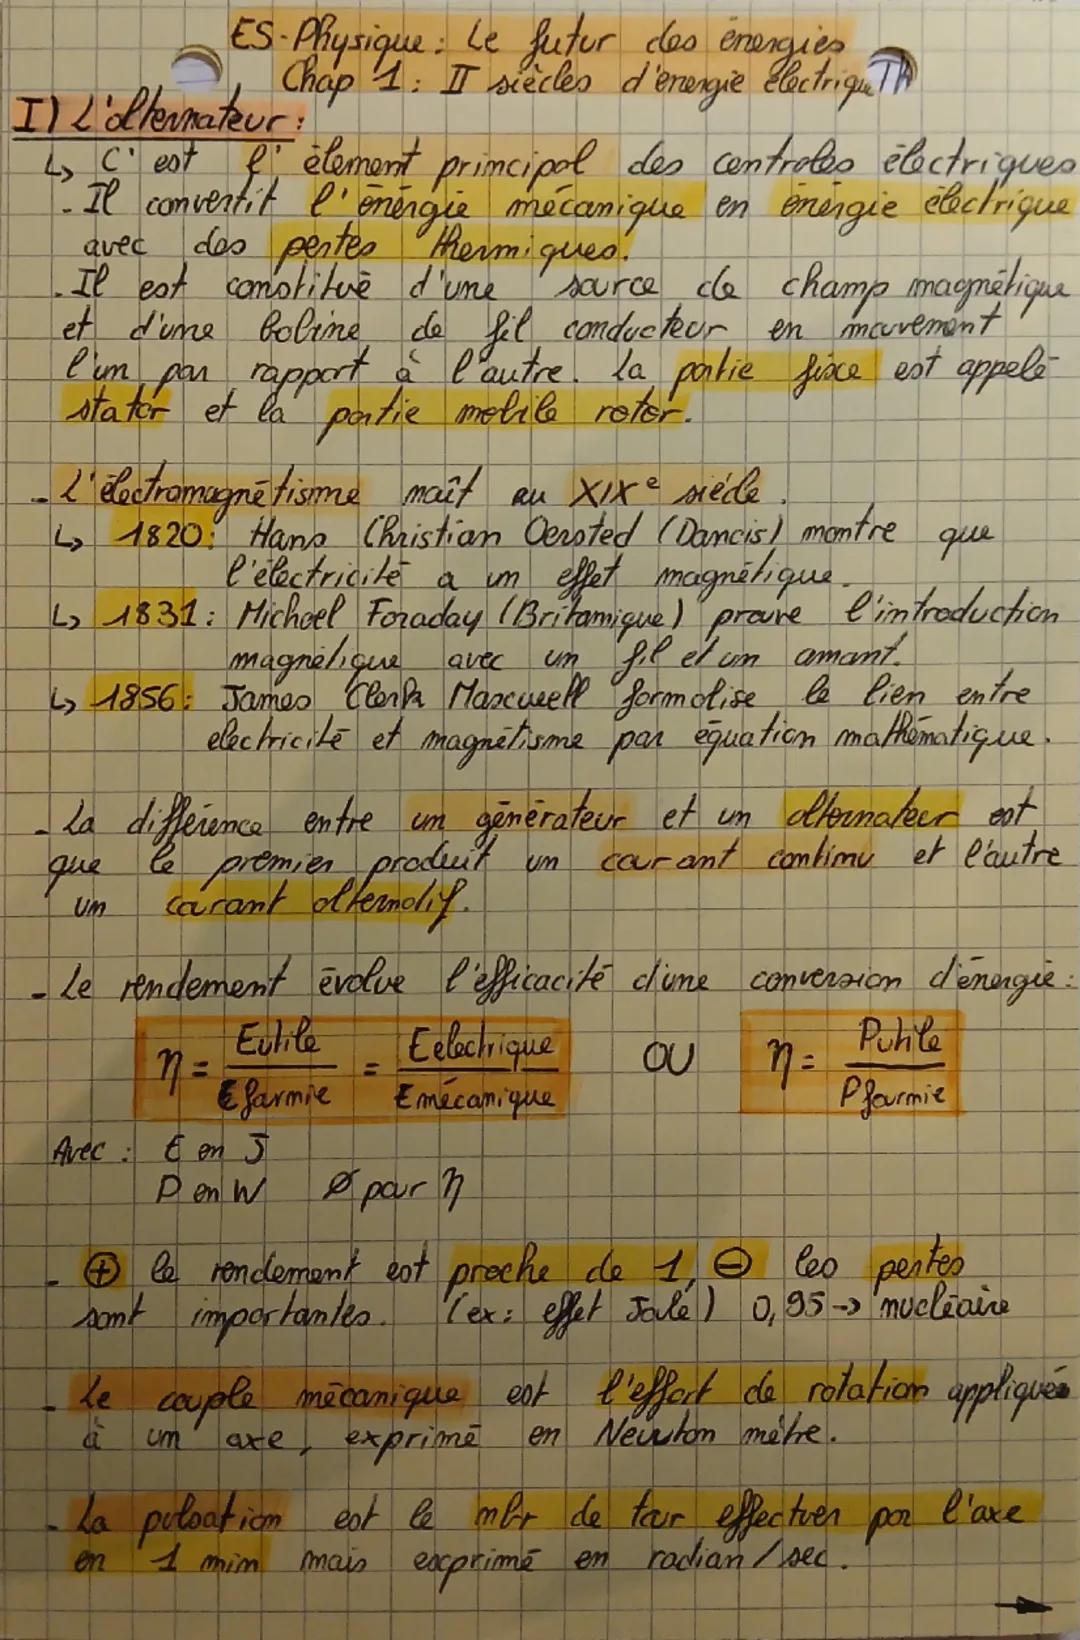 ES-Physique : Le futur des énergies
Chap 1 : II siècles d'énergie électrique Th
I) L'alternateur :
↳ C'est l'élément principal des centrales électriques
- Il convertit l'énergie mécanique en énergie électrique
avec des pertes thermiques.
- Il est constitué d'une source de champ magnétique
et d'une bobine de fil conducteur en mouvement
l'un par rapport à l'autre. La partie fixe est appelé
stator et la partie mobile rotor.
- L'électromagnétisme naît au XIXe siècle.
↳ 1820 : Hans Christian Oersted (Danois) montre que
l'électricité a un effet magnétique.
↳ 1831 : Michael Faraday (Britannique) prouve l'introduction
magnétique avec un fil et un amant.
↳ 1856 : James Clerk Maxcwell formalise le lien entre
electricité et magnétisme par équation mathématique.
- La différence entre un générateur et un alternateur est
que le premier produit un courant continu et l'autre
un courant alternatif.
- Le rendement évolue l'efficacité d'une conversion d'énergie :
η = Eutile / Efournie = Eélectrique / Emécanique OU η = Putile / Pfournie
Avec : E en J
P en W Ø pour η
- ⊕ le rendement est proche de 1, ⊖ les pertes
sont importantes. (ex : effet Joule) 0,95 → nucléaire
- Le couple mécanique est l'effort de rotation appliqués
à un axe, exprimé en Newton mètre.
- La pulsation est le nbr de tour effectuer par l'axe
en 1 min mais exprimé en radian / sec.
→